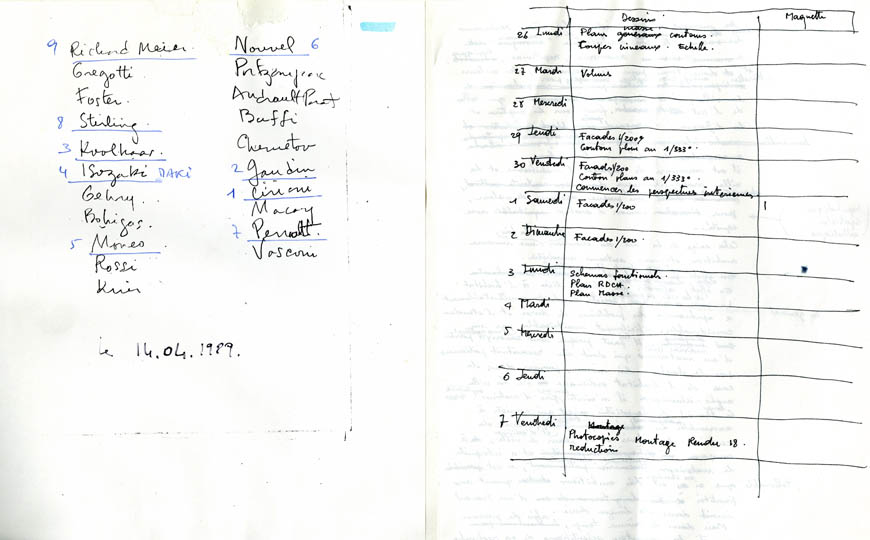 9 Richard Meier
Gregotti
Foster
8 Stirling
3 Koolhaas
4 ISozaki
Gehry
Bohigas
5 Moneo
Rossi
Krier
Nouvel 6
Portzamparc
Andrault Parat
Buffi
Chemetov
2 Gaudin
1 Ciriani
Macary
7 Perrault
Vasconi
le 14.04.1989.
Dessins
Maquette
26 Lundi
Plans
Coupes niveaux. Echelle.
27 Mardi
Volumes
28 Mercredi
29 Jeudi
Facades 1/200
Contour plan au 1/333°
30 Vendredi
Facades 1/200
Contour plans au 1/333°
Commencer les perspectives interieures
1 Samedi
Facades 1/200
2 Dimanche
Facades 1/200.
3 Lundi
Schemas fonctionnels.
Plan RDCH.
Plan Masse.
4 Mardi
5 Mercredi
6 Jeudi
7 Vendredi
Montage
Photocopies Montage Rendu 18.
reduction